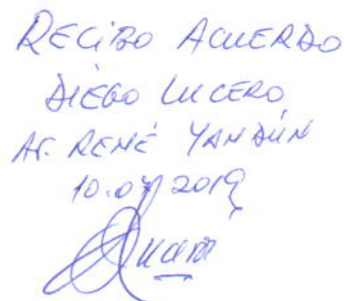 RECIBO ACUERDO
DIEGO LUCERO
AS. RENÉ YANDÚN
10.07.2019